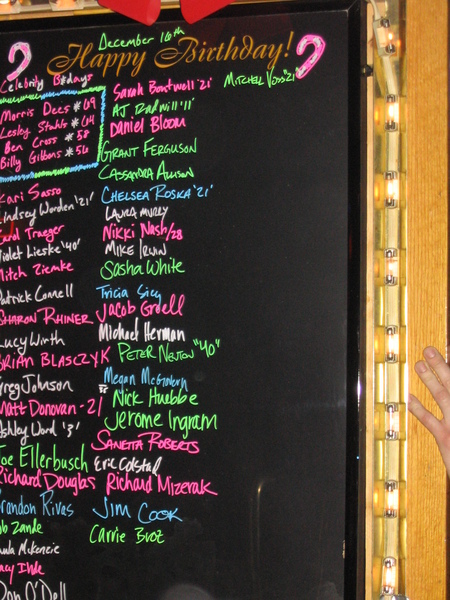 December 16th
Happy Birthday!
Celebrity B*days
Morris Dees *69
Lesly Stahls *64
Ben Cross *58
Billy Gibbons *56
Kari Sasso
Lindsey Worden '21'
Carol Traeger
Violet Lieske '40'
Mitch Ziemke
Patrick Connell
SHARON RHINER
Lucy Wirth
BRIAN BLASCZYK
Greg Johnson
Matt Donovan - 21
Ashley Word
Joe Ellerbusch
Richard Douglas
Brandon Rivas
Bob Zande
Paula McKenzie
Tracy Ihde
Don O'Dell
Sarah Boutwell '21
AJ Radwill '11'
Daniel Bloom
GRANT FERGUSON
CASSANDRA ALLISON
CHELSEA ROSKA '21'
LAURA MURRY
Nikki Nash/28
MIKE IRWIN
Sasha White
Tricia Sieg
Jacob Groell
Michael Herman
PETER NEWTON "40"
Megan McGovern
Nick Huebbe
Jerome Ingram
SANETTA ROBERTS
Eric Colstad
Richard Mizerak
JIM COOK
Carrie Broz
MITCHELL VOSS "21"